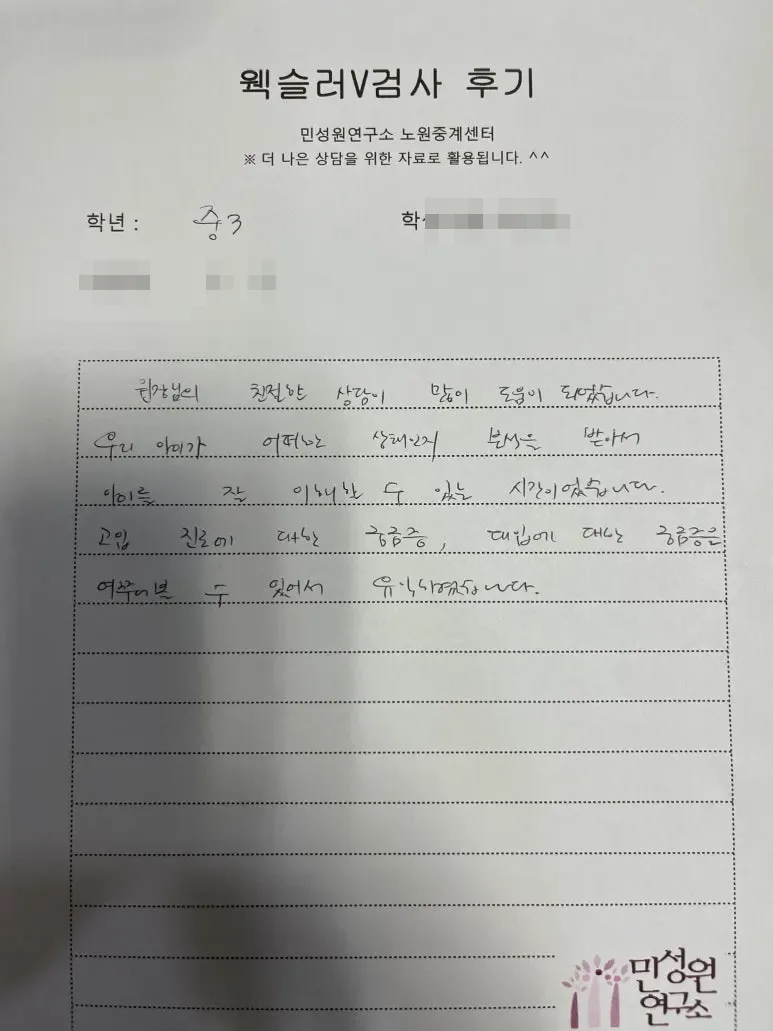 웩슬러V검사 후기
민성원연구소 노원중계센터
※ 더 나은 상담을 위한 자료로 활용됩니다. ^^
학년 : 중3
원장님의 친절한 상담이 많이 도움이 되었습니다.
우리 아이가 어떠한 상태인지 분석을 받아서
아이를 잘 이해할 수 있는 시간이었습니다.
고입 진로에 대한 궁금증, 대입에 대한 궁금증을
여쭈어볼 수 있어서 유익하였습니다.
민성원
연구소